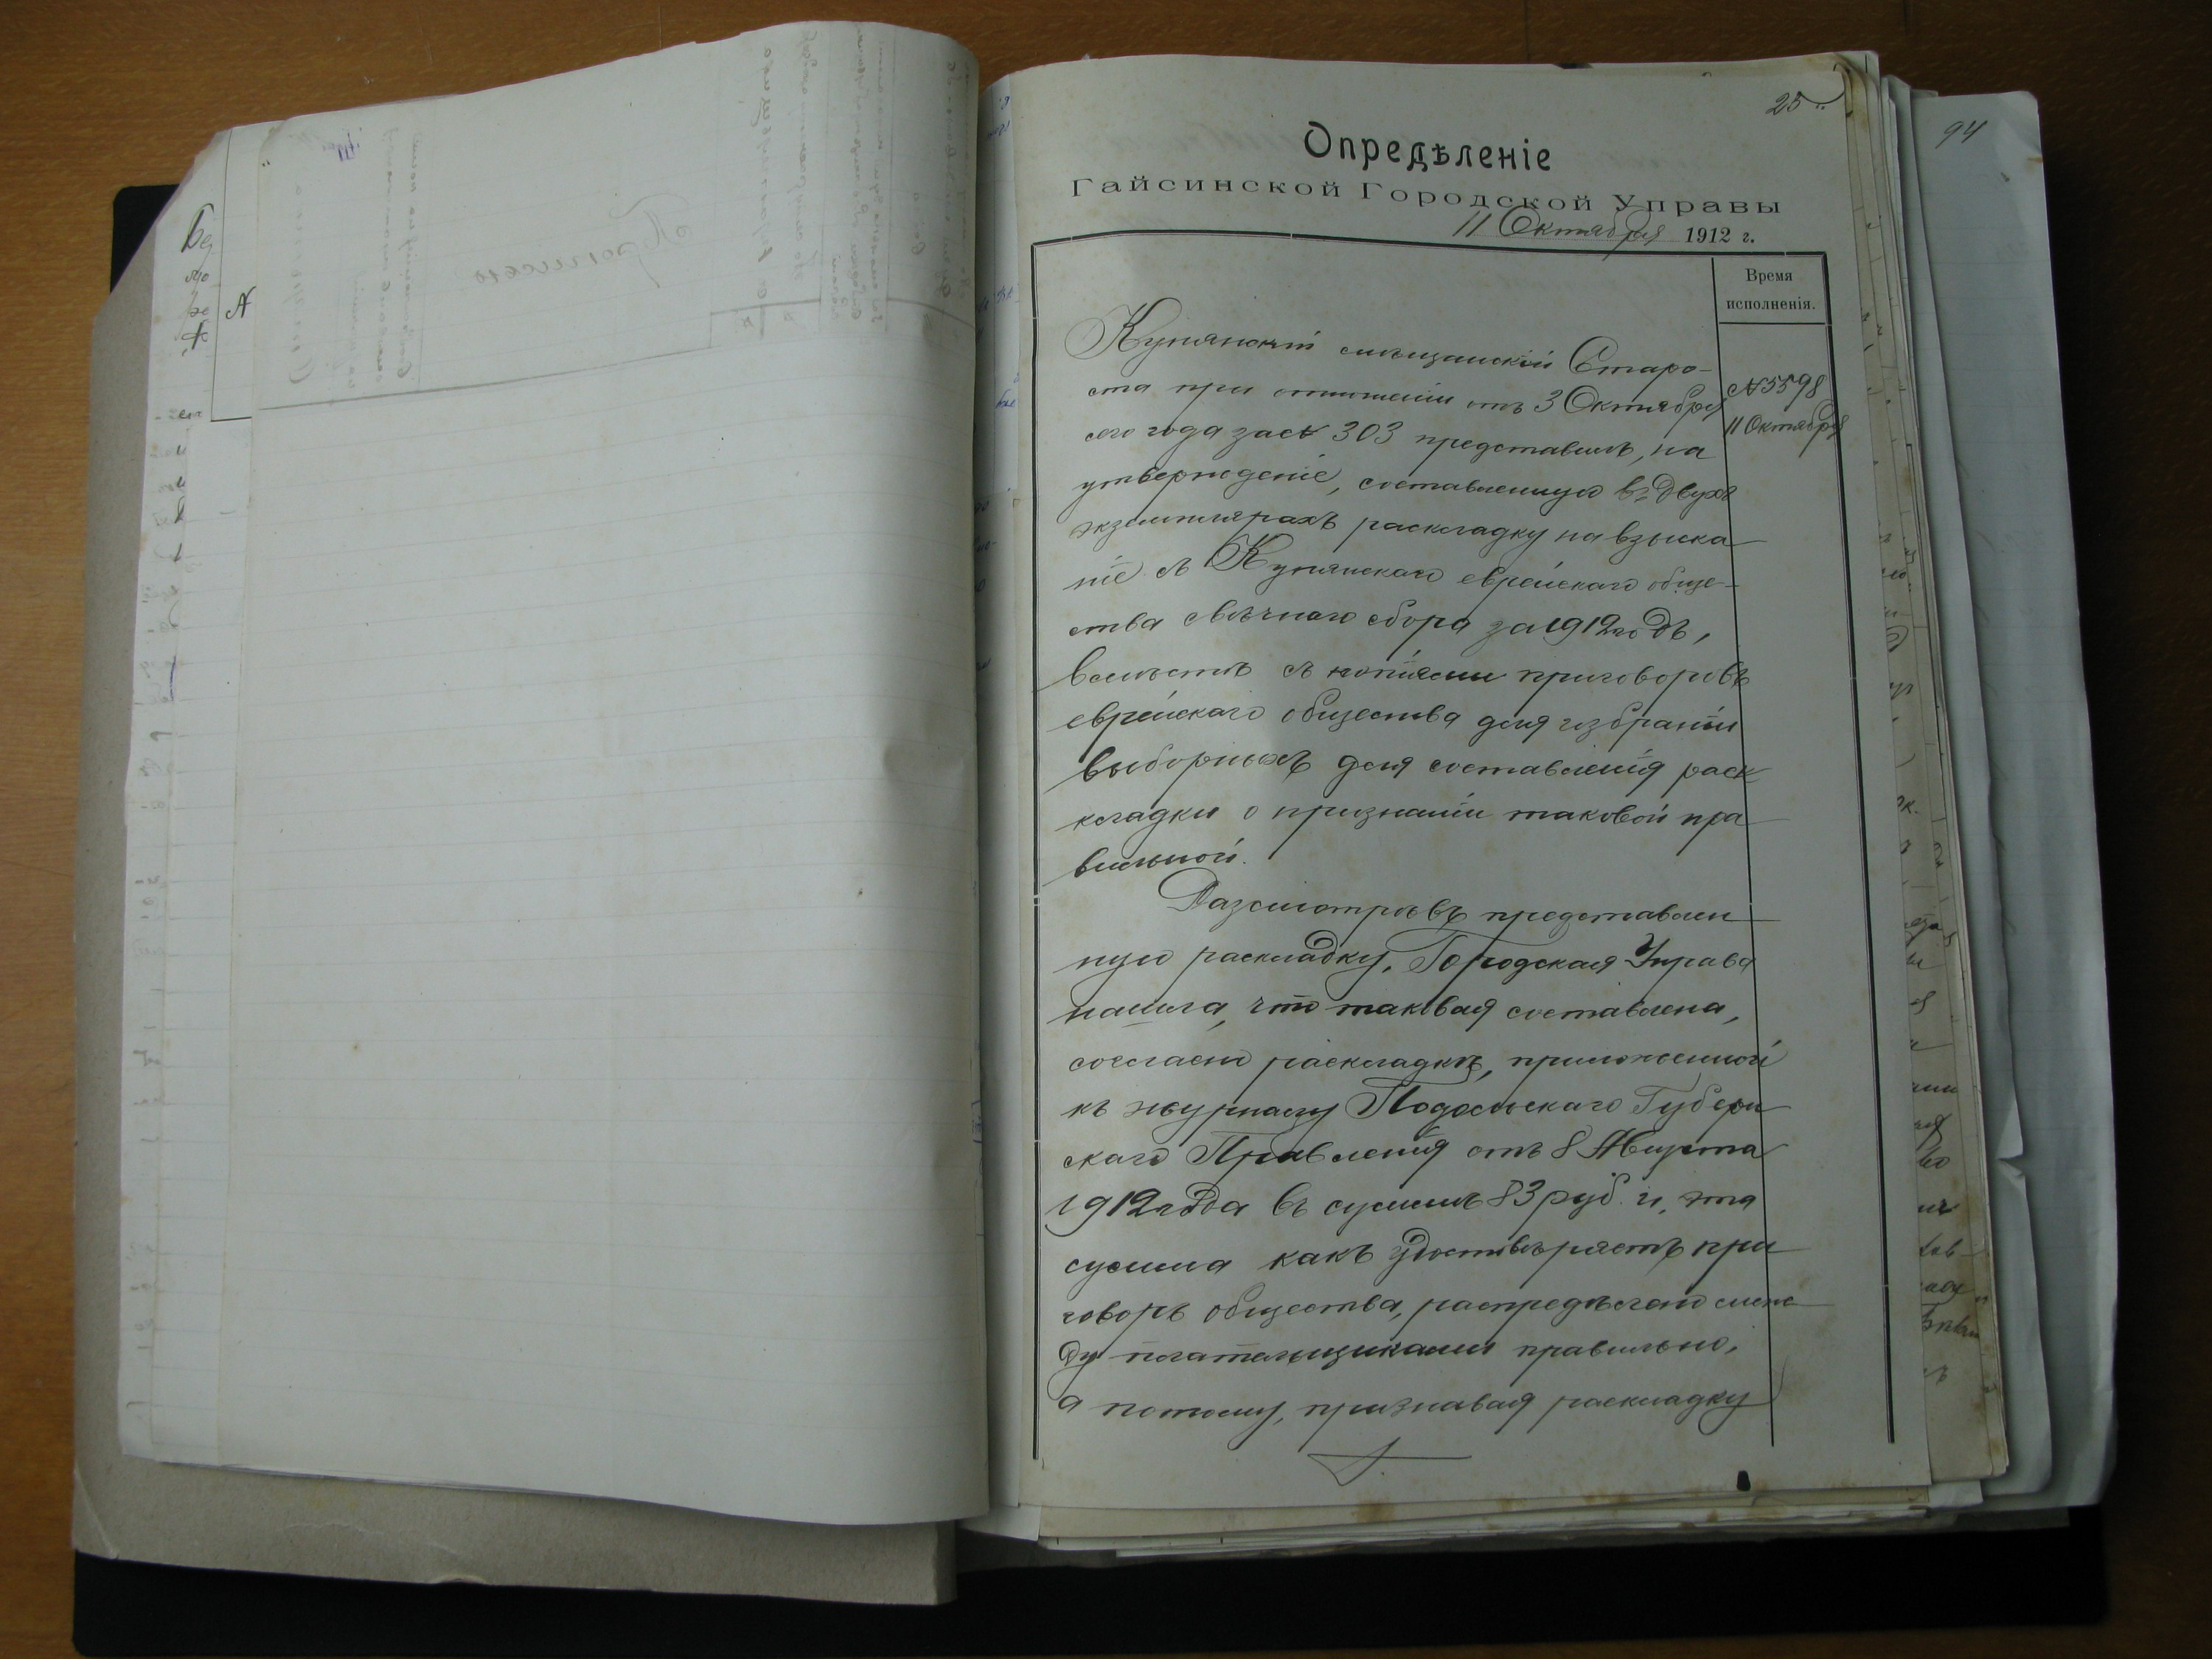 25
94
Опредѣленіе
Гайсинской Городской Управы
11 Октября 1912 г.
Время
исполненія.
№ 5598
11 Октября
Кунянскій мѣщанскій Старо-
ста при отношеніи отъ 3 Октября
сего года за № 303 представилъ, на
утвержденіе, составленную въ двухъ
экземплярахъ раскладку на взыска
ніе съ Кунянскаго еврейскаго обще-
ства свѣчнаго сбора за 1912 годъ,
вмѣстѣ съ копіями приговоровъ
еврейскаго общества для избранія
выборныхъ для составленія раск
кладки о признаніи таковой пра
вильной.
Разсмотрѣвъ представлен
ную раскладку, Городская Управа
нашла, что таковая составлена,
согласно раскладкѣ, приложенной
къ журналу Подольскаго Губерн
скаго Правленія отъ 8 Марта
1912 года въ суммѣ 83 руб. и, эта
сумма какъ удостовѣряетъ при
говоръ общества, распредѣлено меж
ду плательщиками правильно,
а потому, признавая раскладку